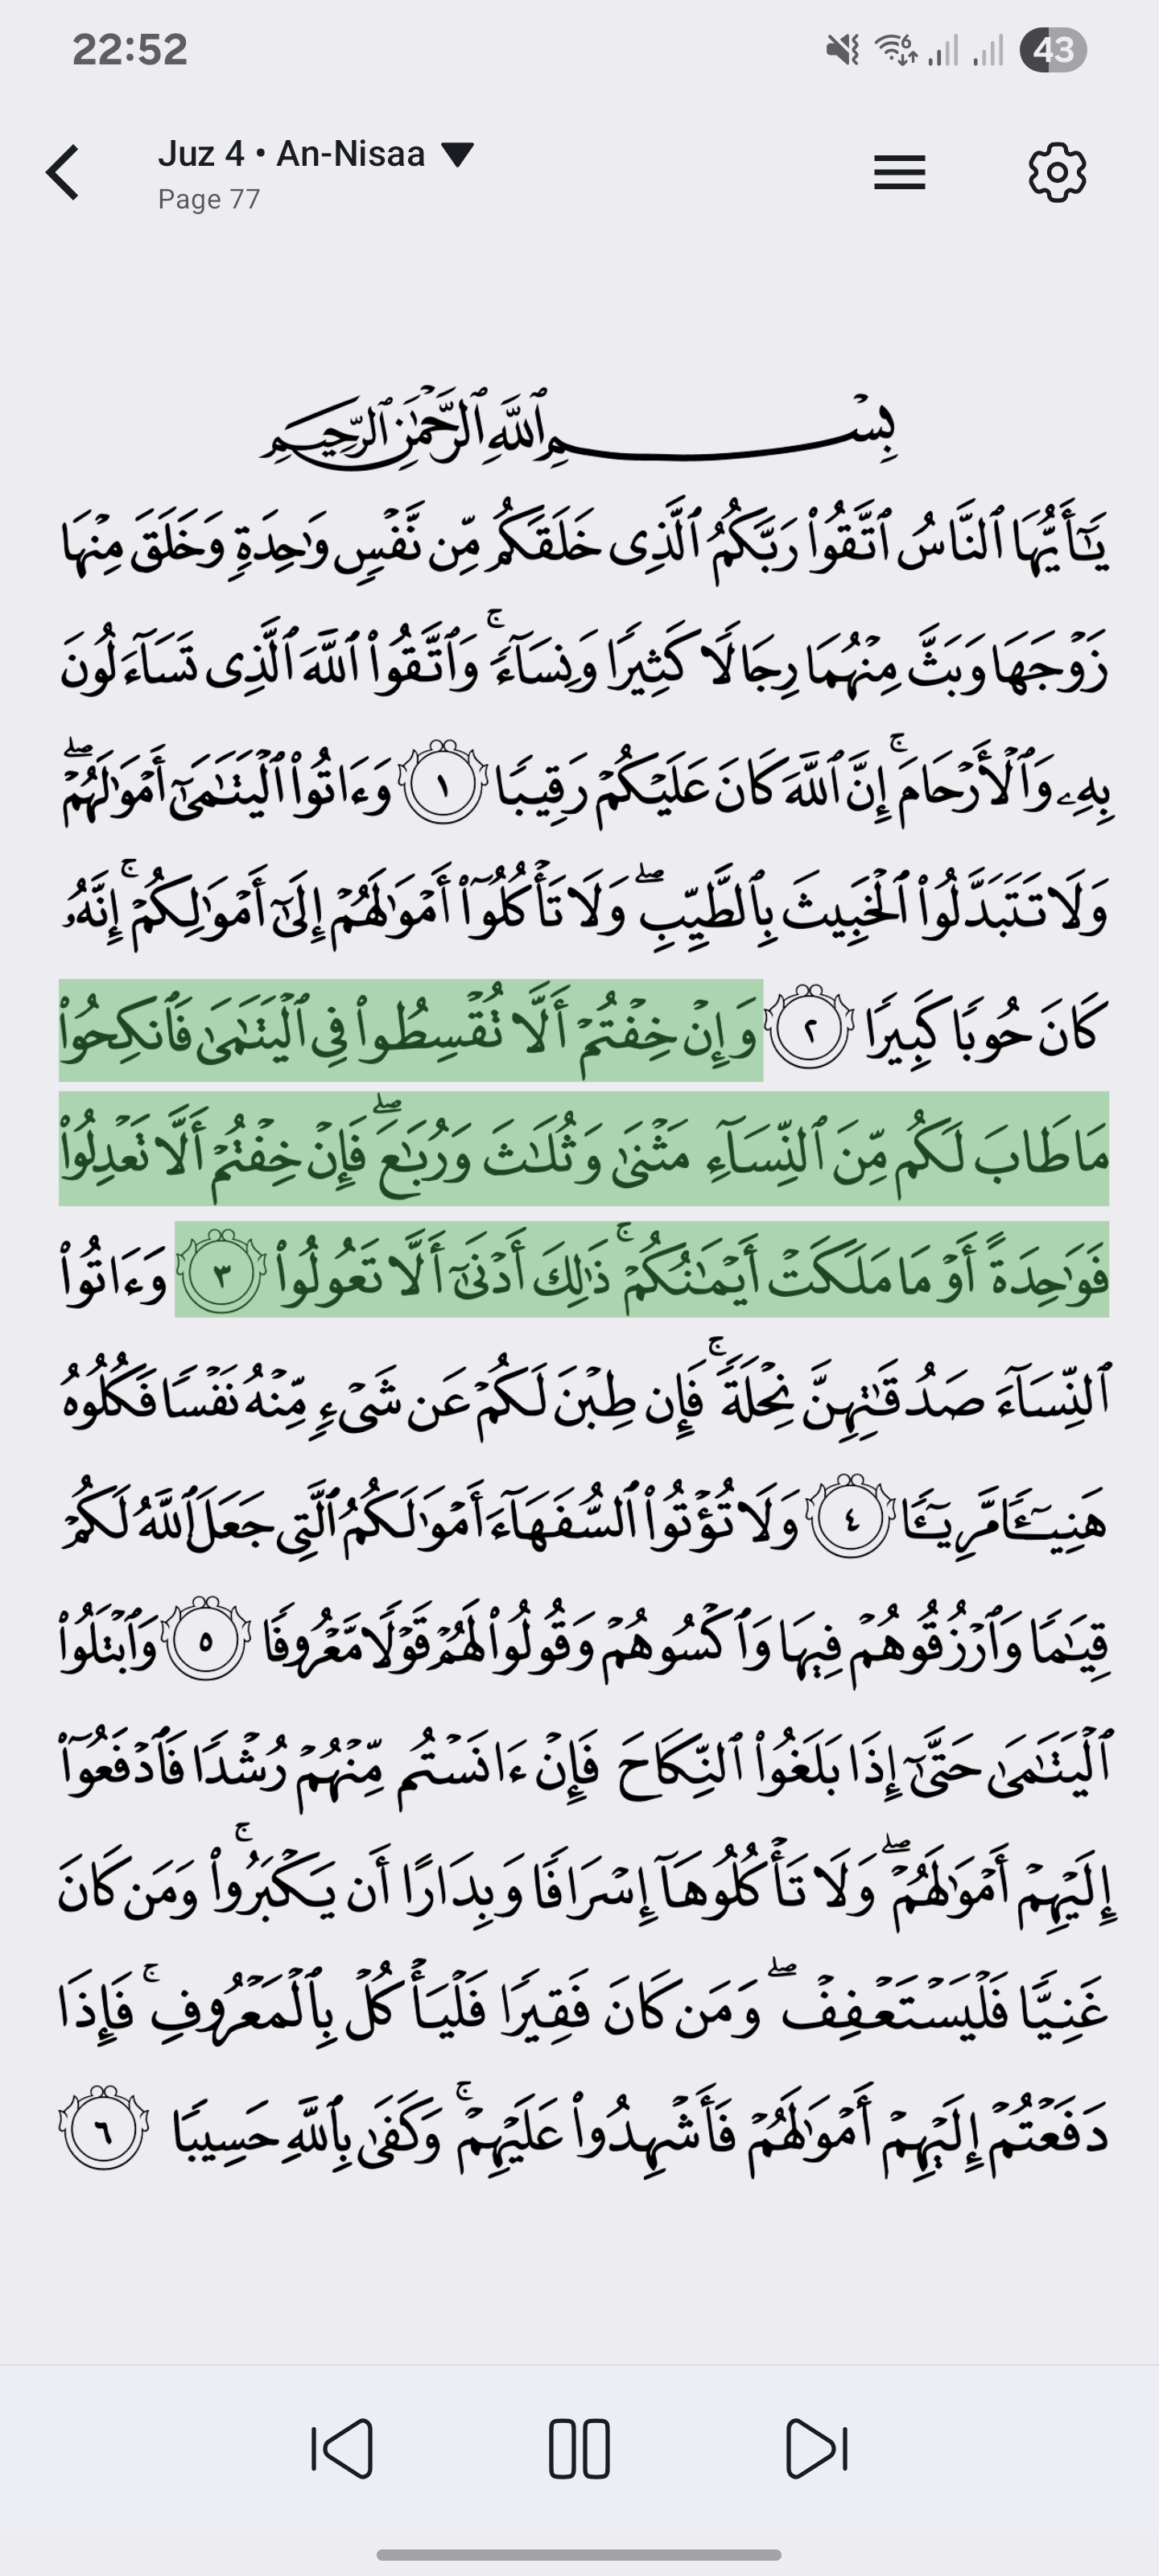 22:52
6
43
Juz 4 • An-Nisaa
Page 77
بِسْمِ ٱللَّهِ ٱلرَّحْمَٰنِ ٱلرَّحِيمِ
يَٰٓأَيُّهَا ٱلنَّاسُ ٱتَّقُوا۟ رَبَّكُمُ ٱلَّذِى خَلَقَكُم مِّن نَّفْسٍ وَٰحِدَةٍ وَخَلَقَ مِنْهَا
زَوْجَهَا وَبَثَّ مِنْهُمَا رِجَالًا كَثِيرًا وَنِسَآءً ۚ وَٱتَّقُوا۟ ٱللَّهَ ٱلَّذِى تَسَآءَلُونَ
بِهِۦ وَٱلْأَرْحَامَ ۚ إِنَّ ٱللَّهَ كَانَ عَلَيْكُمْ رَقِيبًا ١ وَءَاتُوا۟ ٱلْيَتَٰمَىٰٓ أَمْوَٰلَهُمْ ۖ
وَلَا تَتَبَدَّلُوا۟ ٱلْخَبِيثَ بِٱلطَّيِّبِ ۖ وَلَا تَأْكُلُوٓا۟ أَمْوَٰلَهُمْ إِلَىٰٓ أَمْوَٰلِكُمْ ۚ إِنَّهُۥ
كَانَ حُوبًا كَبِيرًا ٢ وَإِنْ خِفْتُمْ أَلَّا تُقْسِطُوا۟ فِى ٱلْيَتَٰمَىٰ فَٱنكِحُوا۟
مَا طَابَ لَكُم مِّنَ ٱلنِّسَآءِ مَثْنَىٰ وَثُلَٰثَ وَرُبَٰعَ ۖ فَإِنْ خِفْتُمْ أَلَّا تَعْدِلُوا۟
فَوَٰحِدَةً أَوْ مَا مَلَكَتْ أَيْمَٰنُكُمْ ۚ ذَٰلِكَ أَدْنَىٰٓ أَلَّا تَعُولُوا۟ ٣ وَءَاتُوا۟
ٱلنِّسَآءَ صَدُقَٰتِهِنَّ نِحْلَةً ۚ فَإِن طِبْنَ لَكُمْ عَن شَىْءٍ مِّنْهُ نَفْسًا فَكُلُوهُ
هَنِيٓـًٔا مَّرِيٓـًٔا ٤ وَلَا تُؤْتُوا۟ ٱلسُّفَهَآءَ أَمْوَٰلَكُمُ ٱلَّتِى جَعَلَ ٱللَّهُ لَكُمْ
قِيَٰمًا وَٱرْزُقُوهُمْ فِيهَا وَٱكْسُوهُمْ وَقُولُوا۟ لَهُمْ قَوْلًا مَّعْرُوفًا ٥ وَٱبْتَلُوا۟
ٱلْيَتَٰمَىٰ حَتَّىٰٓ إِذَا بَلَغُوا۟ ٱلنِّكَاحَ فَإِنْ ءَانَسْتُم مِّنْهُمْ رُشْدًا فَٱدْفَعُوٓا۟
إِلَيْهِمْ أَمْوَٰلَهُمْ ۖ وَلَا تَأْكُلُوهَآ إِسْرَافًا وَبِدَارًا أَن يَكْبَرُوا۟ ۚ وَمَن كَانَ
غَنِيًّا فَلْيَسْتَعْفِفْ ۖ وَمَن كَانَ فَقِيرًا فَلْيَأْكُلْ بِٱلْمَعْرُوفِ ۚ فَإِذَا
دَفَعْتُمْ إِلَيْهِمْ أَمْوَٰلَهُمْ فَأَشْهِدُوا۟ عَلَيْهِمْ ۚ وَكَفَىٰ بِٱللَّهِ حَسِيبًا ٦